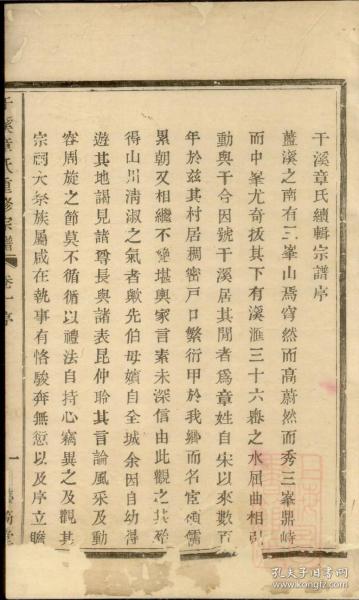 干溪章氏續輯宗譜序
藍溪之南有三峯山焉穹然而高蔚然而秀三峯鼎峙
而中峯尤奇拔其下有溪滙三十六磡之水屈曲相引
動與干合因號干溪居其間者爲章姓自宋以來數百
年於茲其村居稠密戶口繁衍甲於我鄉而名宦碩儒
累朝又相繼不墜堪輿家言素未深信由此觀之其殆
得山川清淑之氣者歟先伯母嬪自全城余因自幼得
遊其地謁見諸尊長與諸表昆仲聆其言論風采及動
容周旋之節莫不循循以禮法自持心竊異之及觀其
宗祠大祭族屬咸在執事有恪駿奔無愆以及序立瞻
干溪章氏重修宗譜 卷一序
一
孔夫子旧书网